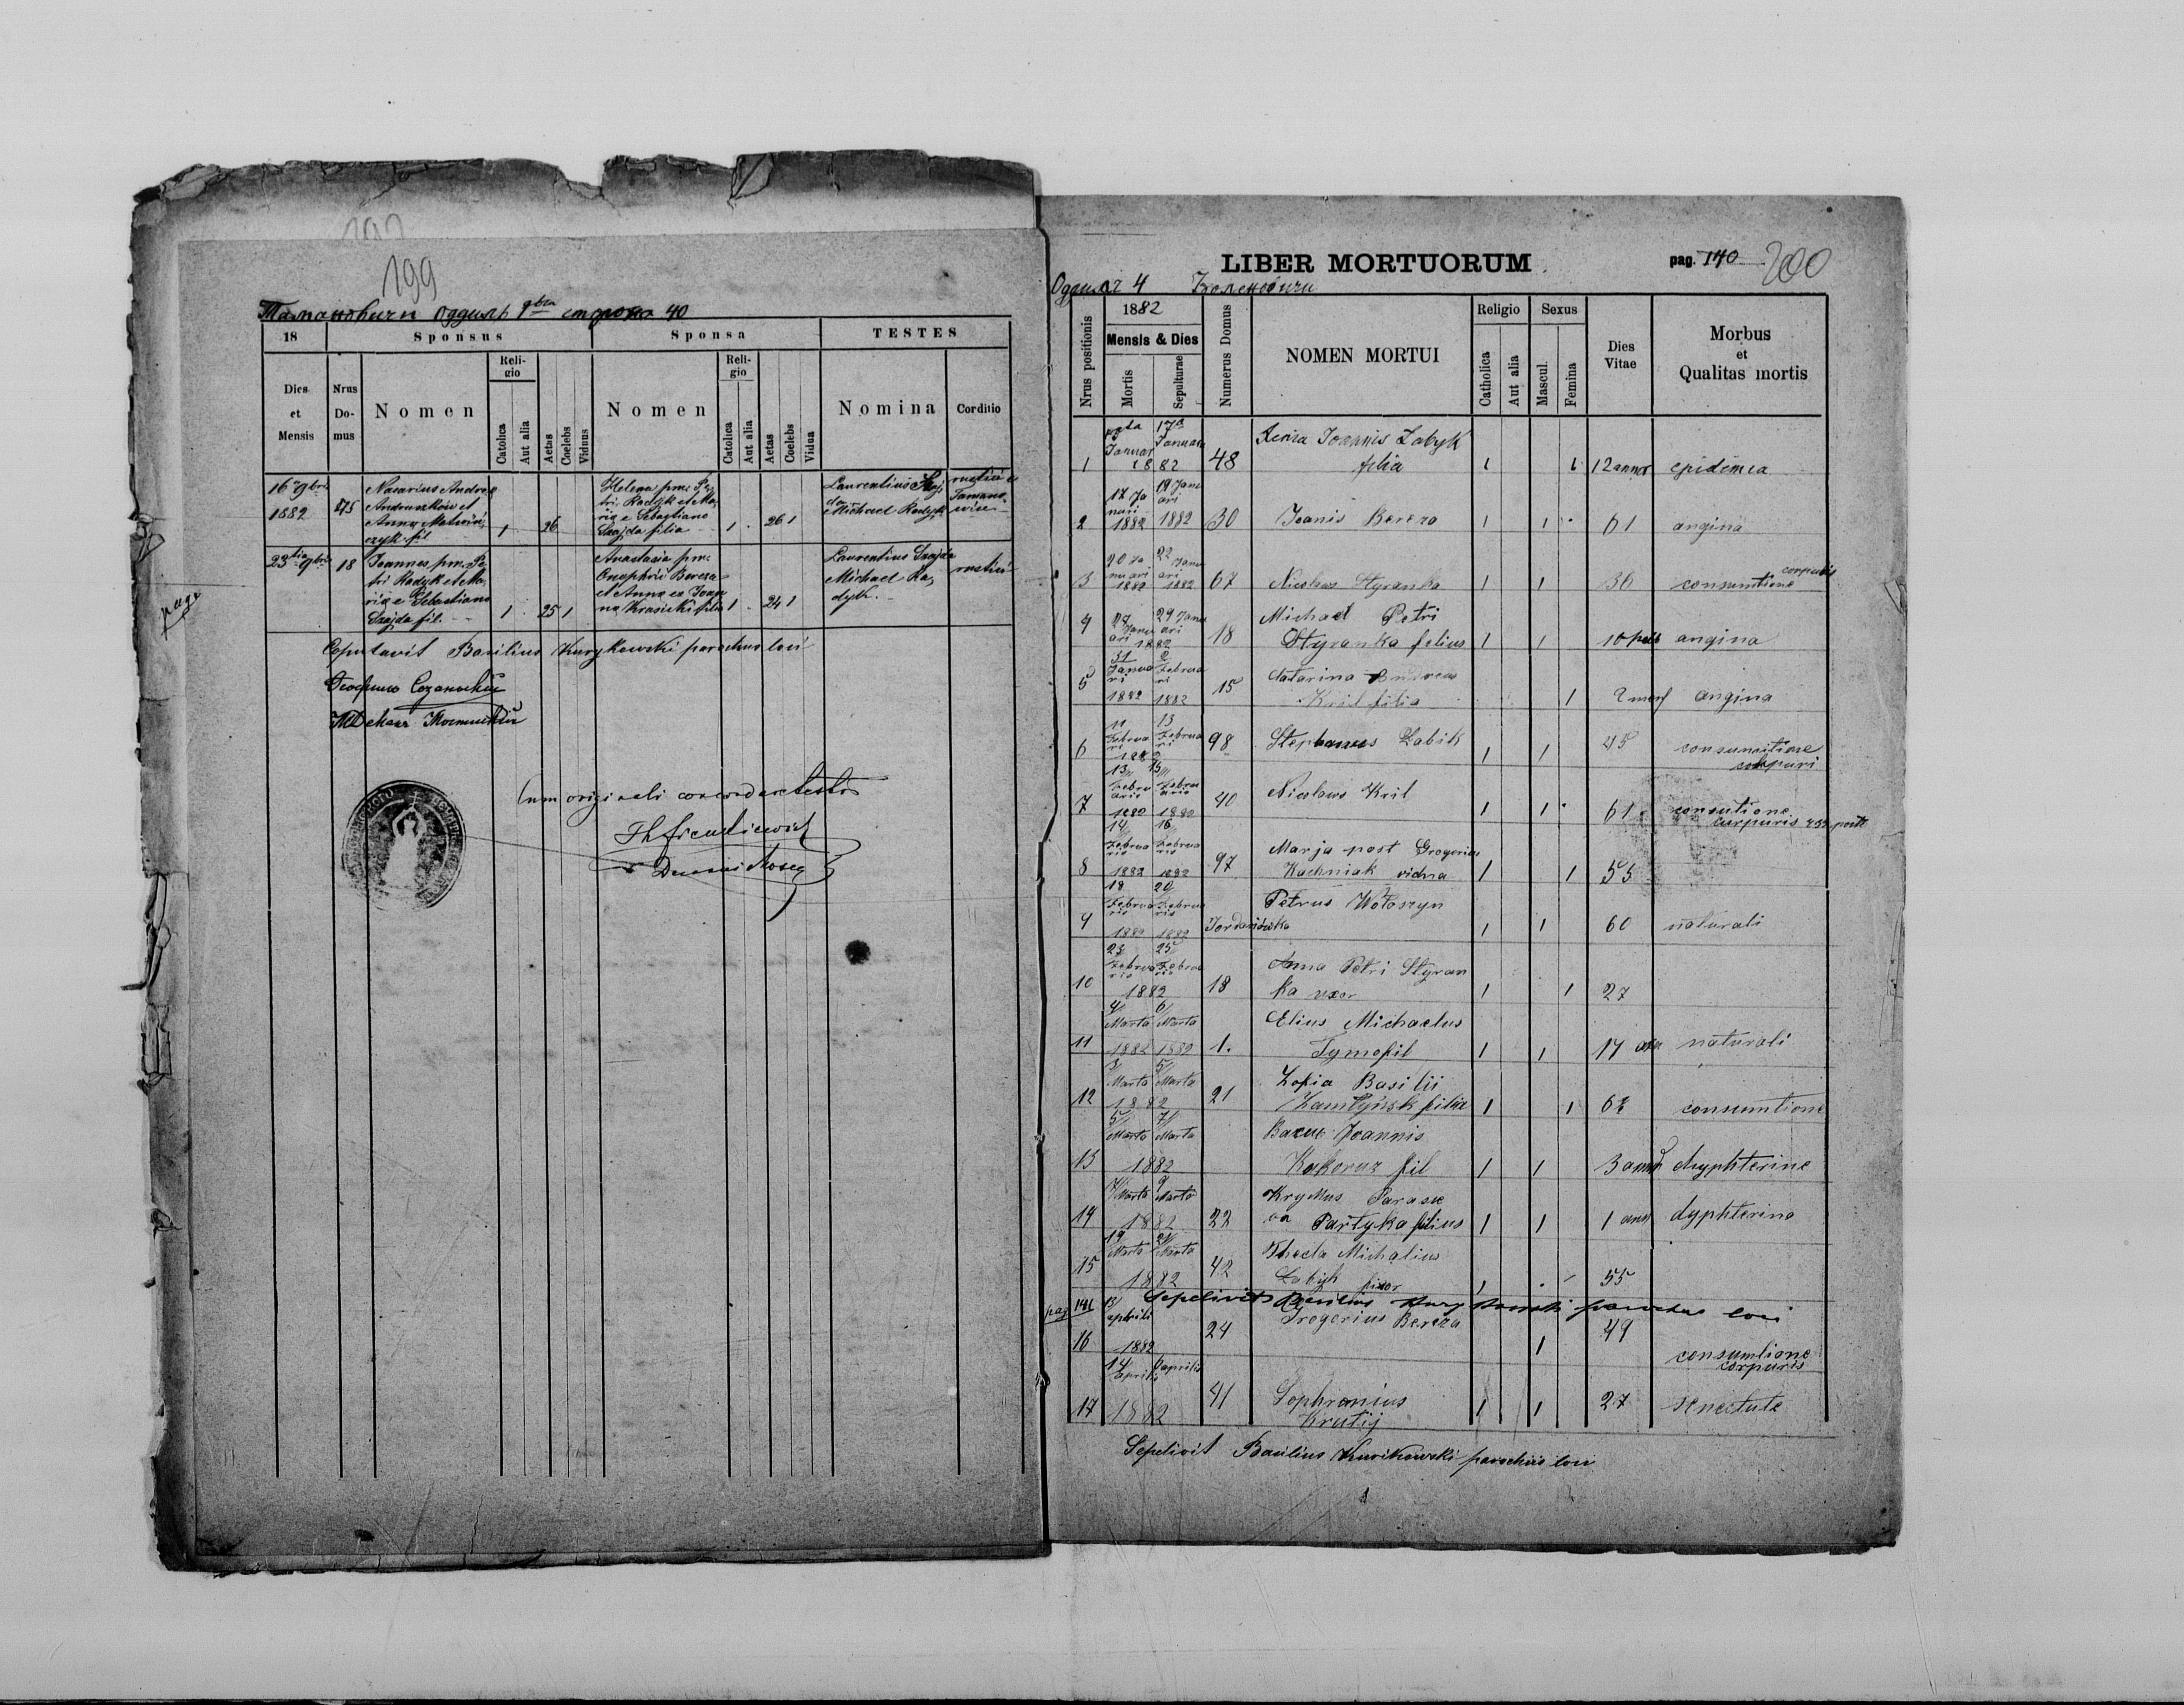 199
Тамановичи Оддѣлъ 9bra сторона 40
18 Sponsus Sponsa TESTES
Dies et Mensis
Nrus Domus
Nomen
Religio
Catolica
Aut alia
Aetas
Coelebs
Viduus
Nomen
Religio
Catolica
Aut alia
Aetas
Coelebs
Vidua
Nomina
Corditio
16 9bris
1882
Nazarius Andreæ
et
Anna
czyk fil
1 26
Helena pm: Pe
tri Radyk et Ma
ria e Sebastiano
Szajda filia
1 26 1
Laurentius Szaj
da
Michael Radyk
rustici e
Tamano
wice
23tia 9bris 18
Joannes pm: Pe
tri Radyk et Ma
ria e Sebastiano
Szajda fil.
1 25 1
Anastasia pm:
Onophrii Bereza
et Anna ex Joan
na Krasicki filia
1 24 1
Laurentius Szajda
Michael Ra
dyk.
rustici
Copulavit Basilius Kurykowski parochus loci
Cum originali concordare testor
page
LIBER MORTUORUM
pag. 140 200
Оддѣлъ 4
Nrus positionis
1882
Mensis & Dies
Mortis
Sepulturae
Numerus Domus
NOMEN MORTUI
Religio
Catholica
Aut alia
Sexus
Mascul.
Femina
Dies Vitae
Morbus
et
Qualitas mortis
Januar 17a Januari
1 1882 48 Joannis Labyk
filia 1 1 12 annor epidimea
17 Januari 19 Januari
2 1882 1882 30 Joanis Bereza 1 1 61 angina
20 Januari 22 Januari
3 1882 1882 67 Nicolaus Styranka 1 1 36 consumtione corpuris
4 27 Januari 29 Januari
1882 18 Michael Petri
Styranka felius 1 1 10 angina
31 Januari 2 Februari
5 1882 1882 15 Catarina Andreas
Kril filia 1 2 angina
11 Februari 13 Februari
6 1882 98 Stephanus Labik 1 1 45 consumitione
corpuri
13 Februaris 15 Februaris
7 1882 1882 40 Nicolaus Kril 1 1 61 consutione
curpuris
14 Februaris 16 Februaris
8 1882 1882 97 Marja post Gregorius
Kachniak vidua 1 1 55
18 Februaris 20 Februaris
9 1882 1882 Jordanówka Petrus Wołoszyn 1 1 60 naturali
23 Februaris 25 Februaris
10 1882 18 Anna Petri Styran
ka uxor 1 1 27
4/ Marta 6/ Marta
11 1882 1882 1. Elius Michaelus
Tymofil 1 1 14 naturali
3/ Marta 5/ Marta
12 1882 21 Zofia Basilii
filia 1 1 consumtione
5/ Marta 7/ Marta
13 1882 Joannis
Kokoruz fil 1 1 3 dyphterine
7/ Marta 9 Marta
14 1882 22 Parasce
va Partyka filius 1 1 1 dyphterina
19 Marta 21/ Marta
15 1882 42 Thecla Michalius
Labyk uxor 1 55
pag 141 Sepelivit Basilius Kurykowski parochus loci
aprili
16 1882 24 Gregorius Bereza 1 49 consumtione
corpuris
14 aprili aprilis
17 1882 41 Sophronius
Krutij 1 1 27 senectute
Sepelivit Basilius Kurikowski parochus loci